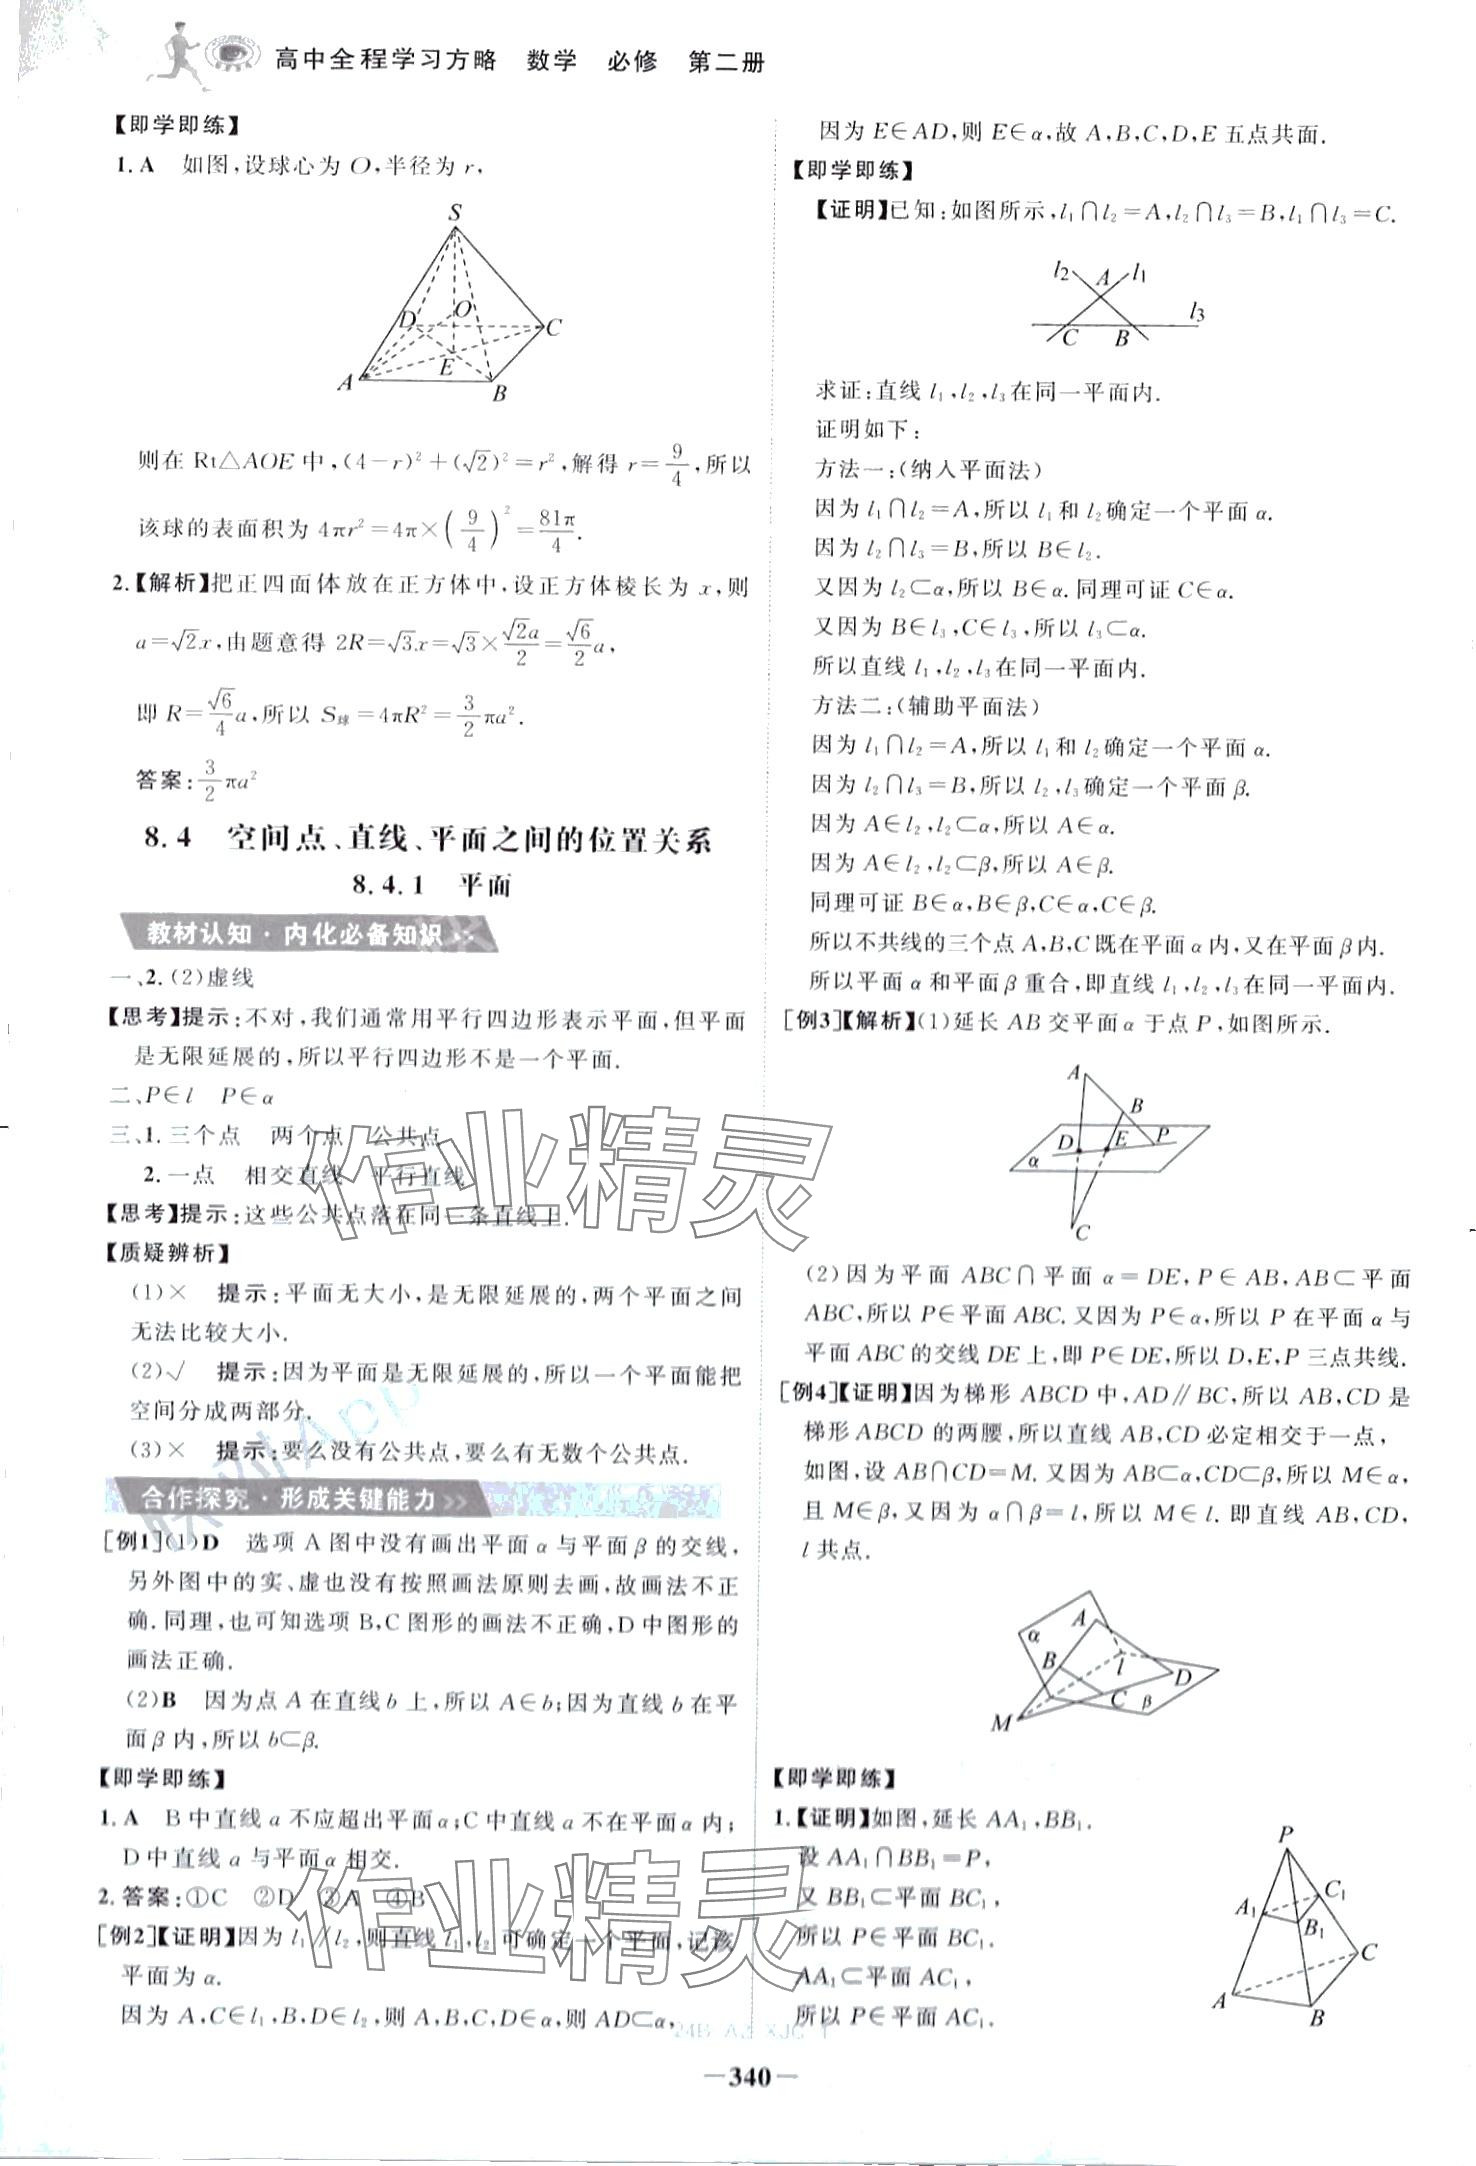 高中全程学习方略 数学 必修 第二册
【即学即练】
1.A 如图,设球心为 O,半径为 r,
S
D O C
E
A B
则在 Rt△AOE 中,(4-r)²+(√2)²=r²,解得 r=9/4,所以
该球的表面积为 4πr²=4π×(9/4)²=81π/4.
2.【解析】把正四面体放在正方体中,设正方体棱长为 x,则
a=√2x,由题意得 2R=√3x=√3×√2a/2=√6/2a,
即 R=√6/4a,所以 S球=4πR²=3/2πa².
答案:3/2πa²
8.4 空间点、直线、平面之间的位置关系
8.4.1 平面
教材认知·内化必备知识
一、2.(2)虚线
【思考】提示:不对,我们通常用平行四边形表示平面,但平面
是无限延展的,所以平行四边形不是一个平面.
二、P∈l P∈α
三、1.三个点 两个点 公共点
2.一点 相交直线 平行直线
【思考】提示:这些公共点落在同一条直线上.
【质疑辨析】
(1)× 提示:平面无大小,是无限延展的,两个平面之间
无法比较大小.
(2)√ 提示:因为平面是无限延展的,所以一个平面能把
空间分成两部分.
(3)× 提示:要么没有公共点,要么有无数个公共点.
合作探究·形成关键能力>>
[例1](1)D 选项 A 图中没有画出平面 α 与平面 β 的交线,
另外图中的实、虚也没有按照画法原则去画,故画法不正
确.同理,也可知选项 B,C 图形的画法不正确,D 中图形的
画法正确.
(2)B 因为点 A 在直线 b 上,所以 A∈b;因为直线 b 在平
面 β 内,所以 b⊂β.
【即学即练】
1.A B 中直线 a 不应超出平面 α;C 中直线 a 不在平面 α 内;
D 中直线 a 与平面 α 相交.
2.答案:①C ②D ③A ④B
[例2]【证明】因为 l₁∥l₂,则直线 l₁,l₂ 可确定一个平面,记该
平面为 α.
因为 A,C∈l₁,B,D∈l₂,则 A,B,C,D∈α,所以 AD⊂α,
因为 E∈AD,则 E∈α,故 A,B,C,D,E 五点共面.
【即学即练】
【证明】已知:如图所示,l₁∩l₂=A,l₂∩l₃=B,l₁∩l₃=C.
l₂ A l₁
l₃
C B
求证:直线 l₁,l₂,l₃ 在同一平面内.
证明如下:
方法一:(纳入平面法)
因为 l₁∩l₂=A,所以 l₁ 和 l₂ 确定一个平面 α.
因为 l₂∩l₃=B,所以 B∈l₂.
又因为 l₂⊂α,所以 B∈α.同理可证 C∈α.
又因为 B∈l₃,C∈l₃,所以 l₃⊂α.
所以直线 l₁,l₂,l₃ 在同一平面内.
方法二:(辅助平面法)
因为 l₁∩l₂=A,所以 l₁ 和 l₂ 确定一个平面 α.
因为 l₂∩l₃=B,所以 l₂,l₃ 确定一个平面 β.
因为 A∈l₂,l₂⊂α,所以 A∈α.
因为 A∈l₂,l₂⊂β,所以 A∈β.
同理可证 B∈α,B∈β,C∈α,C∈β.
所以不共线的三个点 A,B,C 既在平面 α 内,又在平面 β 内.
所以平面 α 和平面 β 重合,即直线 l₁,l₂,l₃ 在同一平面内.
[例3]【解析】(1)延长 AB 交平面 α 于点 P,如图所示.
A
B
D E P
α
C
(2)因为平面 ABC∩平面 α=DE,P∈AB,AB⊂平面
ABC,所以 P∈平面 ABC.又因为 P∈α,所以 P 在平面 α 与
平面 ABC 的交线 DE 上,即 P∈DE,所以 D,E,P 三点共线.
[例4]【证明】因为梯形 ABCD 中,AD∥BC,所以 AB,CD 是
梯形 ABCD 的两腰,所以直线 AB,CD 必定相交于一点,
如图,设 AB∩CD=M.又因为 AB⊂α,CD⊂β,所以 M∈α,
且 M∈β,又因为 α∩β=l,所以 M∈l.即直线 AB,CD,
l 共点.
α A
B l D
C β
M
【即学即练】
1.【证明】如图,延长 AA₁,BB₁.
设 AA₁∩BB₁=P,
又 BB₁⊂平面 BC₁,
所以 P∈平面 BC₁.
AA₁⊂平面 AC₁,
所以 P∈平面 AC₁.
P
A₁ C₁
B₁
C
A
B
作业精灵
作业精灵
—340—